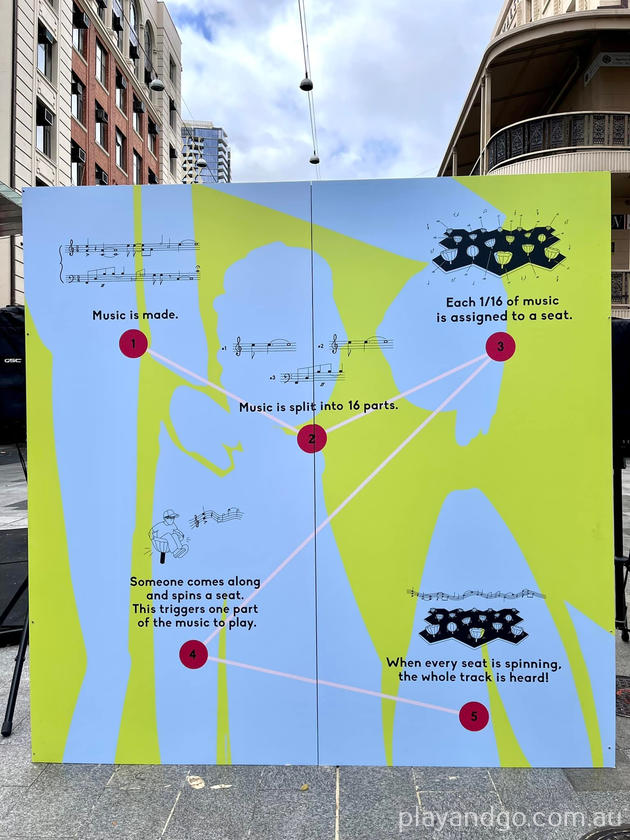 Music is made.
1
•1
•2
•3
Music is split into 16 parts.
2
Each 1/16 of music
is assigned to a seat.
3
Someone comes along
and spins a seat.
This triggers one part
of the music to play.
4
When every seat is spinning,
the whole track is heard!
5
QSC
playandgo.com.au